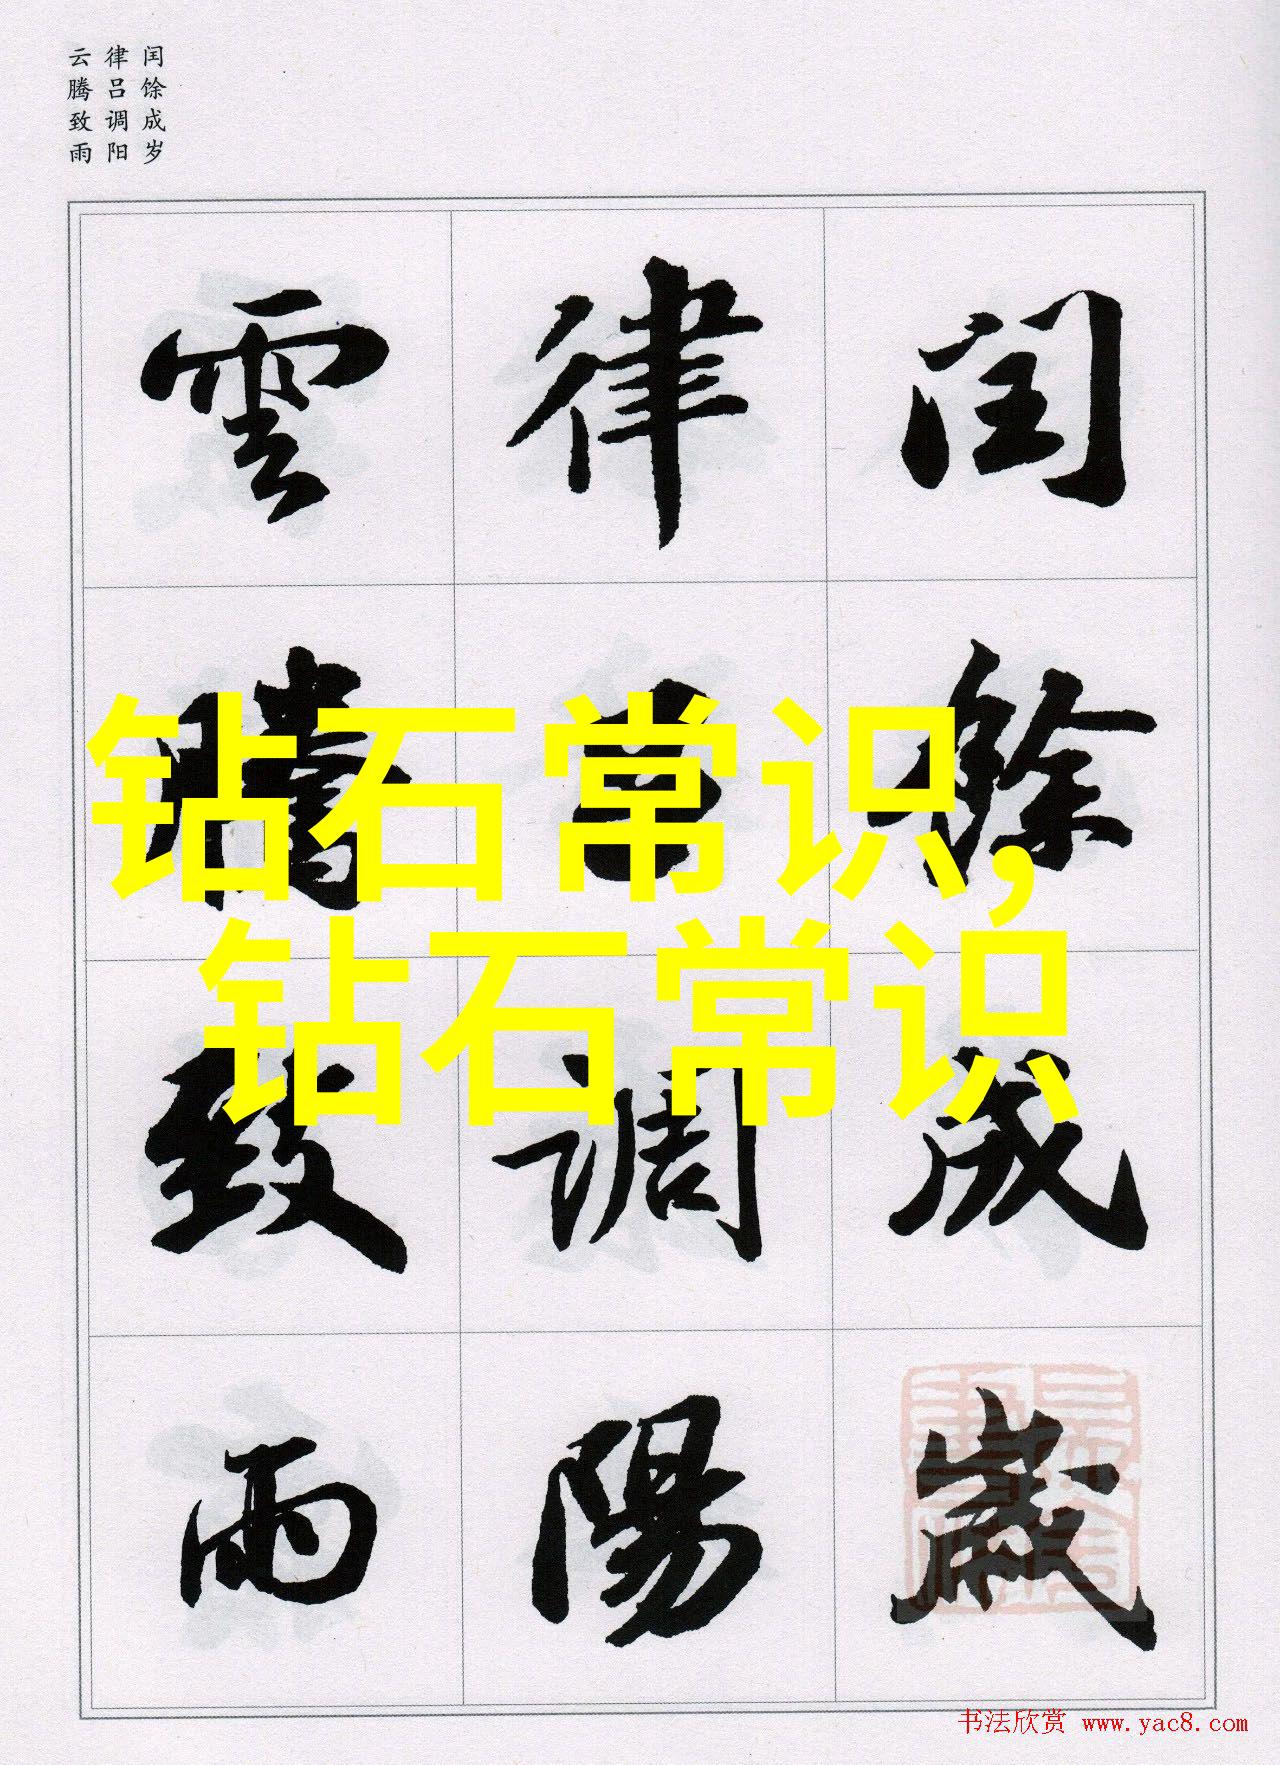 闰馀成岁
律吕调阳
云腾致雨
閏餘成歲
律吕調陽
雲騰致雨
钻石常识,
钻石常识
书法欣赏 www.yac8.com